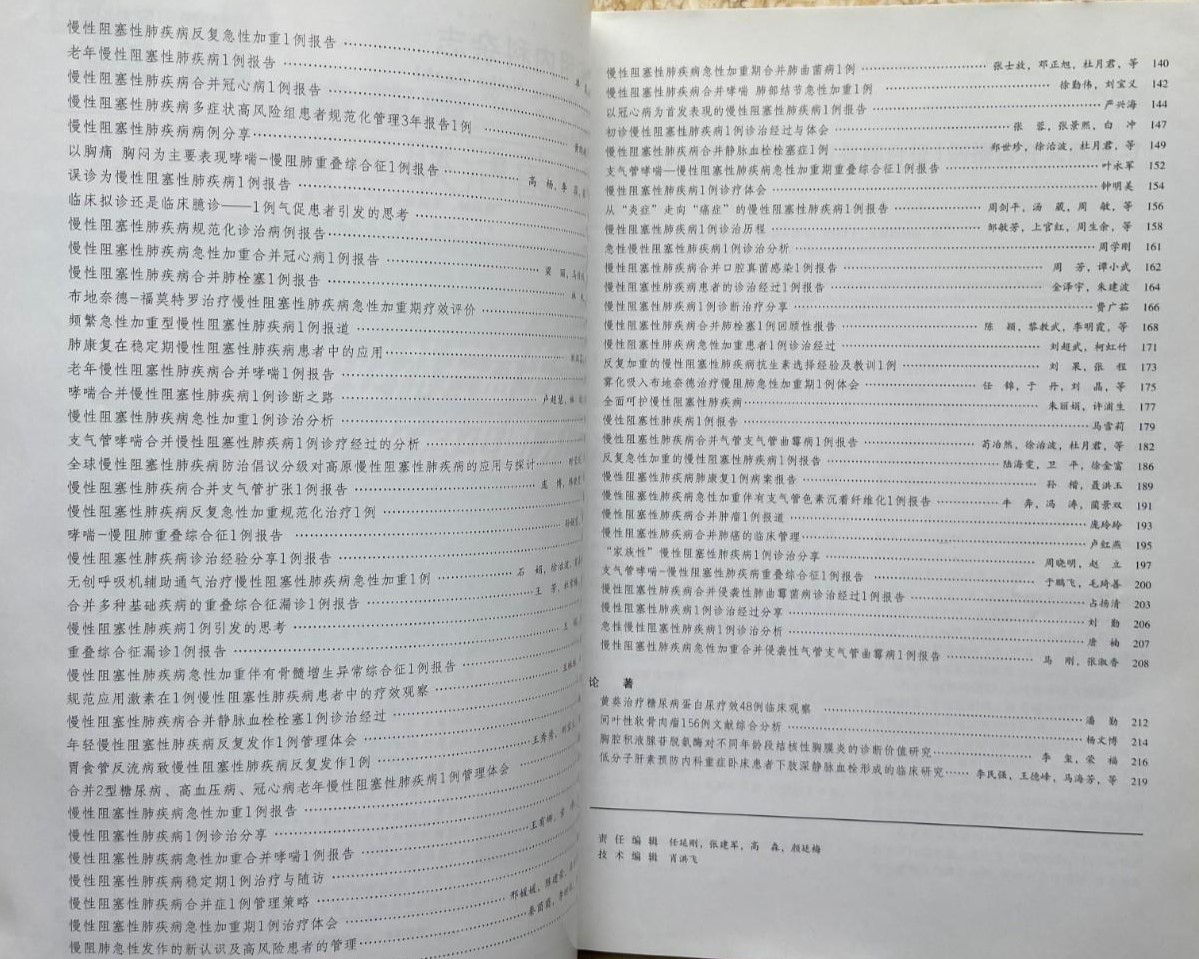 慢性阻塞性肺疾病反复急性加重1例报告
老年慢性阻塞性肺疾病1例报告
慢性阻塞性肺疾病合并冠心病1例报告
慢性阻塞性肺疾病多症状高风险组患者规范化管理3年报告1例
慢性阻塞性肺疾病病例分享
以胸痛 胸闷为主要表现哮喘-慢阻肺重叠综合征1例报告 高 杨,李
误诊为慢性阻塞性肺疾病1例报告
临床拟诊还是临床臆诊——1例气促患者引发的思考
慢性阻塞性肺疾病规范化诊治病例报告
慢性阻塞性肺疾病急性加重合并冠心病1例报告
慢性阻塞性肺疾病合并肺栓塞1例报告
布地奈德-福莫特罗治疗慢性阻塞性肺疾病急性加重期疗效评价
频繁急性加重型慢性阻塞性肺疾病1例报道
肺康复在稳定期慢性阻塞性肺疾病患者中的应用
老年慢性阻塞性肺疾病合并哮喘1例报告
哮喘合并慢性阻塞性肺疾病1例诊断之路 卢超慧
慢性阻塞性肺疾病急性加重1例诊治分析
支气管哮喘合并慢性阻塞性肺疾病1例诊疗经过的分析
全球慢性阻塞性肺疾病防治倡议分级对高原慢性阻塞性肺疾病的应用与探讨
慢性阻塞性肺疾病合并支气管扩张1例报告
慢性阻塞性肺疾病反复急性加重规范化治疗1例
哮喘-慢阻肺重叠综合征1例报告
慢性阻塞性肺疾病诊治经验分享1例报告
无创呼吸机辅助通气治疗慢性阻塞性肺疾病急性加重1例 石 娟,徐治波
合并多种基础疾病的重叠综合征漏诊1例报告 王 芳
慢性阻塞性肺疾病1例引发的思考
重叠综合征漏诊1例报告
慢性阻塞性肺疾病急性加重伴有骨髓增生异常综合征1例报告
规范应用激素在1例慢性阻塞性肺疾病患者中的疗效观察
慢性阻塞性肺疾病合并静脉血栓栓塞1例诊治经过
年轻慢性阻塞性肺疾病反复发作1例管理体会 王秀秀
胃食管反流病致慢性阻塞性肺疾病反复发作1例
合并2型糖尿病、高血压病、冠心病老年慢性阻塞性肺疾病1例管理体会
慢性阻塞性肺疾病急性加重1例报告
慢性阻塞性肺疾病1例诊治分享
慢性阻塞性肺疾病急性加重合并哮喘1例报告
慢性阻塞性肺疾病稳定期1例治疗与随访
慢性阻塞性肺疾病合并症1例管理策略
慢性阻塞性肺疾病急性加重期1例治疗体会
慢阻肺急性发作的新认识及高风险患者的管理
慢性阻塞性肺疾病急性加重期合并肺曲菌病1例 张士放,邓正旭,杜月君,等 140
慢性阻塞性肺疾病合并哮喘 肺部结节急性加重1例 徐勤伟,刘宝义 142
以冠心病为首发表现的慢性阻塞性肺疾病1例报告 严兴海 144
初诊慢性阻塞性肺疾病1例诊治经过与体会 张 蓉,张景熙,白 冲 147
慢性阻塞性肺疾病合并静脉血栓栓塞症1例 郑世珍,徐治波,杜月君,等 149
支气管哮喘—慢性阻塞性肺疾病急性加重期重叠综合征1例报告 叶永军 152
慢性阻塞性肺疾病1例诊疗体会 钟明美 154
从“炎症”走向“癌症”的慢性阻塞性肺疾病1例报告 周剑平,汤 葳,周 敏,等 156
慢性阻塞性肺疾病1例诊治历程 邹敏芳,上官红,周生余,等 158
急性慢性阻塞性肺疾病1例诊治分析 周学刚 161
慢性阻塞性肺疾病合并口腔真菌感染1例报告 周 芳,谭小武 162
慢性阻塞性肺疾病患者的诊治经过1例报告 金泽宇,朱建波 164
慢性阻塞性肺疾病1例诊断治疗分享 费广茹 166
慢性阻塞性肺疾病合并肺栓塞1例回顾性报告 陈 颖,黎教武,李明霞,等 168
慢性阻塞性肺疾病急性加重患者1例诊治经过 刘超武,柯虹竹 171
反复加重的慢性阻塞性肺疾病抗生素选择经验及教训1例 刘 果,张 程 173
雾化吸入布地奈德治疗慢阻肺急性加重期1例体会 任 锦,于 丹,刘 晶,等 175
全面呵护慢性阻塞性肺疾病 朱丽娟,许浦生 177
慢性阻塞性肺疾病1例报告 马雪莉 179
慢性阻塞性肺疾病合并气管支气管曲霉病1例报告 苟治然,徐治波,杜月君,等 182
反复急性加重的慢性阻塞性肺疾病1例报告 陆海雯,卫 平,徐金富 186
慢性阻塞性肺疾病肺康复1例病案报告 孙 楷,聂洪玉 189
慢性阻塞性肺疾病急性加重伴有支气管色素沉着纤维化1例报告 牛 奔,冯 涛,蔺景双 191
慢性阻塞性肺疾病合并肿瘤1例报道 庞玲玲 193
慢性阻塞性肺疾病合并肺癌的临床管理 卢红燕 195
“家族性”慢性阻塞性肺疾病1例诊治分享 周晓明,赵 立 197
支气管哮喘-慢性阻塞性肺疾病重叠综合征1例报告 于鹏飞,毛琦善 200
慢性阻塞性肺疾病合并侵袭性肺曲霉菌病诊治经过1例报告 占扬清 203
慢性阻塞性肺疾病1例诊治经过分享 刘 勤 206
急性慢性阻塞性肺疾病1例诊治分析 唐 楠 207
慢性阻塞性肺疾病急性加重合并侵袭性气管支气管曲霉病1例报告 马 刚,张淑香 208
论 著
黄葵治疗糖尿病蛋白尿疗效48例临床观察 潘 勤 212
间叶性软骨肉瘤156例文献综合分析 杨文博 214
胸腔积液腺苷脱氨酶对不同年龄段结核性胸膜炎的诊断价值研究 李 玺,荣 福 216
低分子肝素预防内科重症卧床患者下肢深静脉血栓形成的临床研究 李民强,王德峰,马海芳,等 219
责任编辑 任延刚,张建军,高 森,颜廷梅
技术编辑 肖洪飞